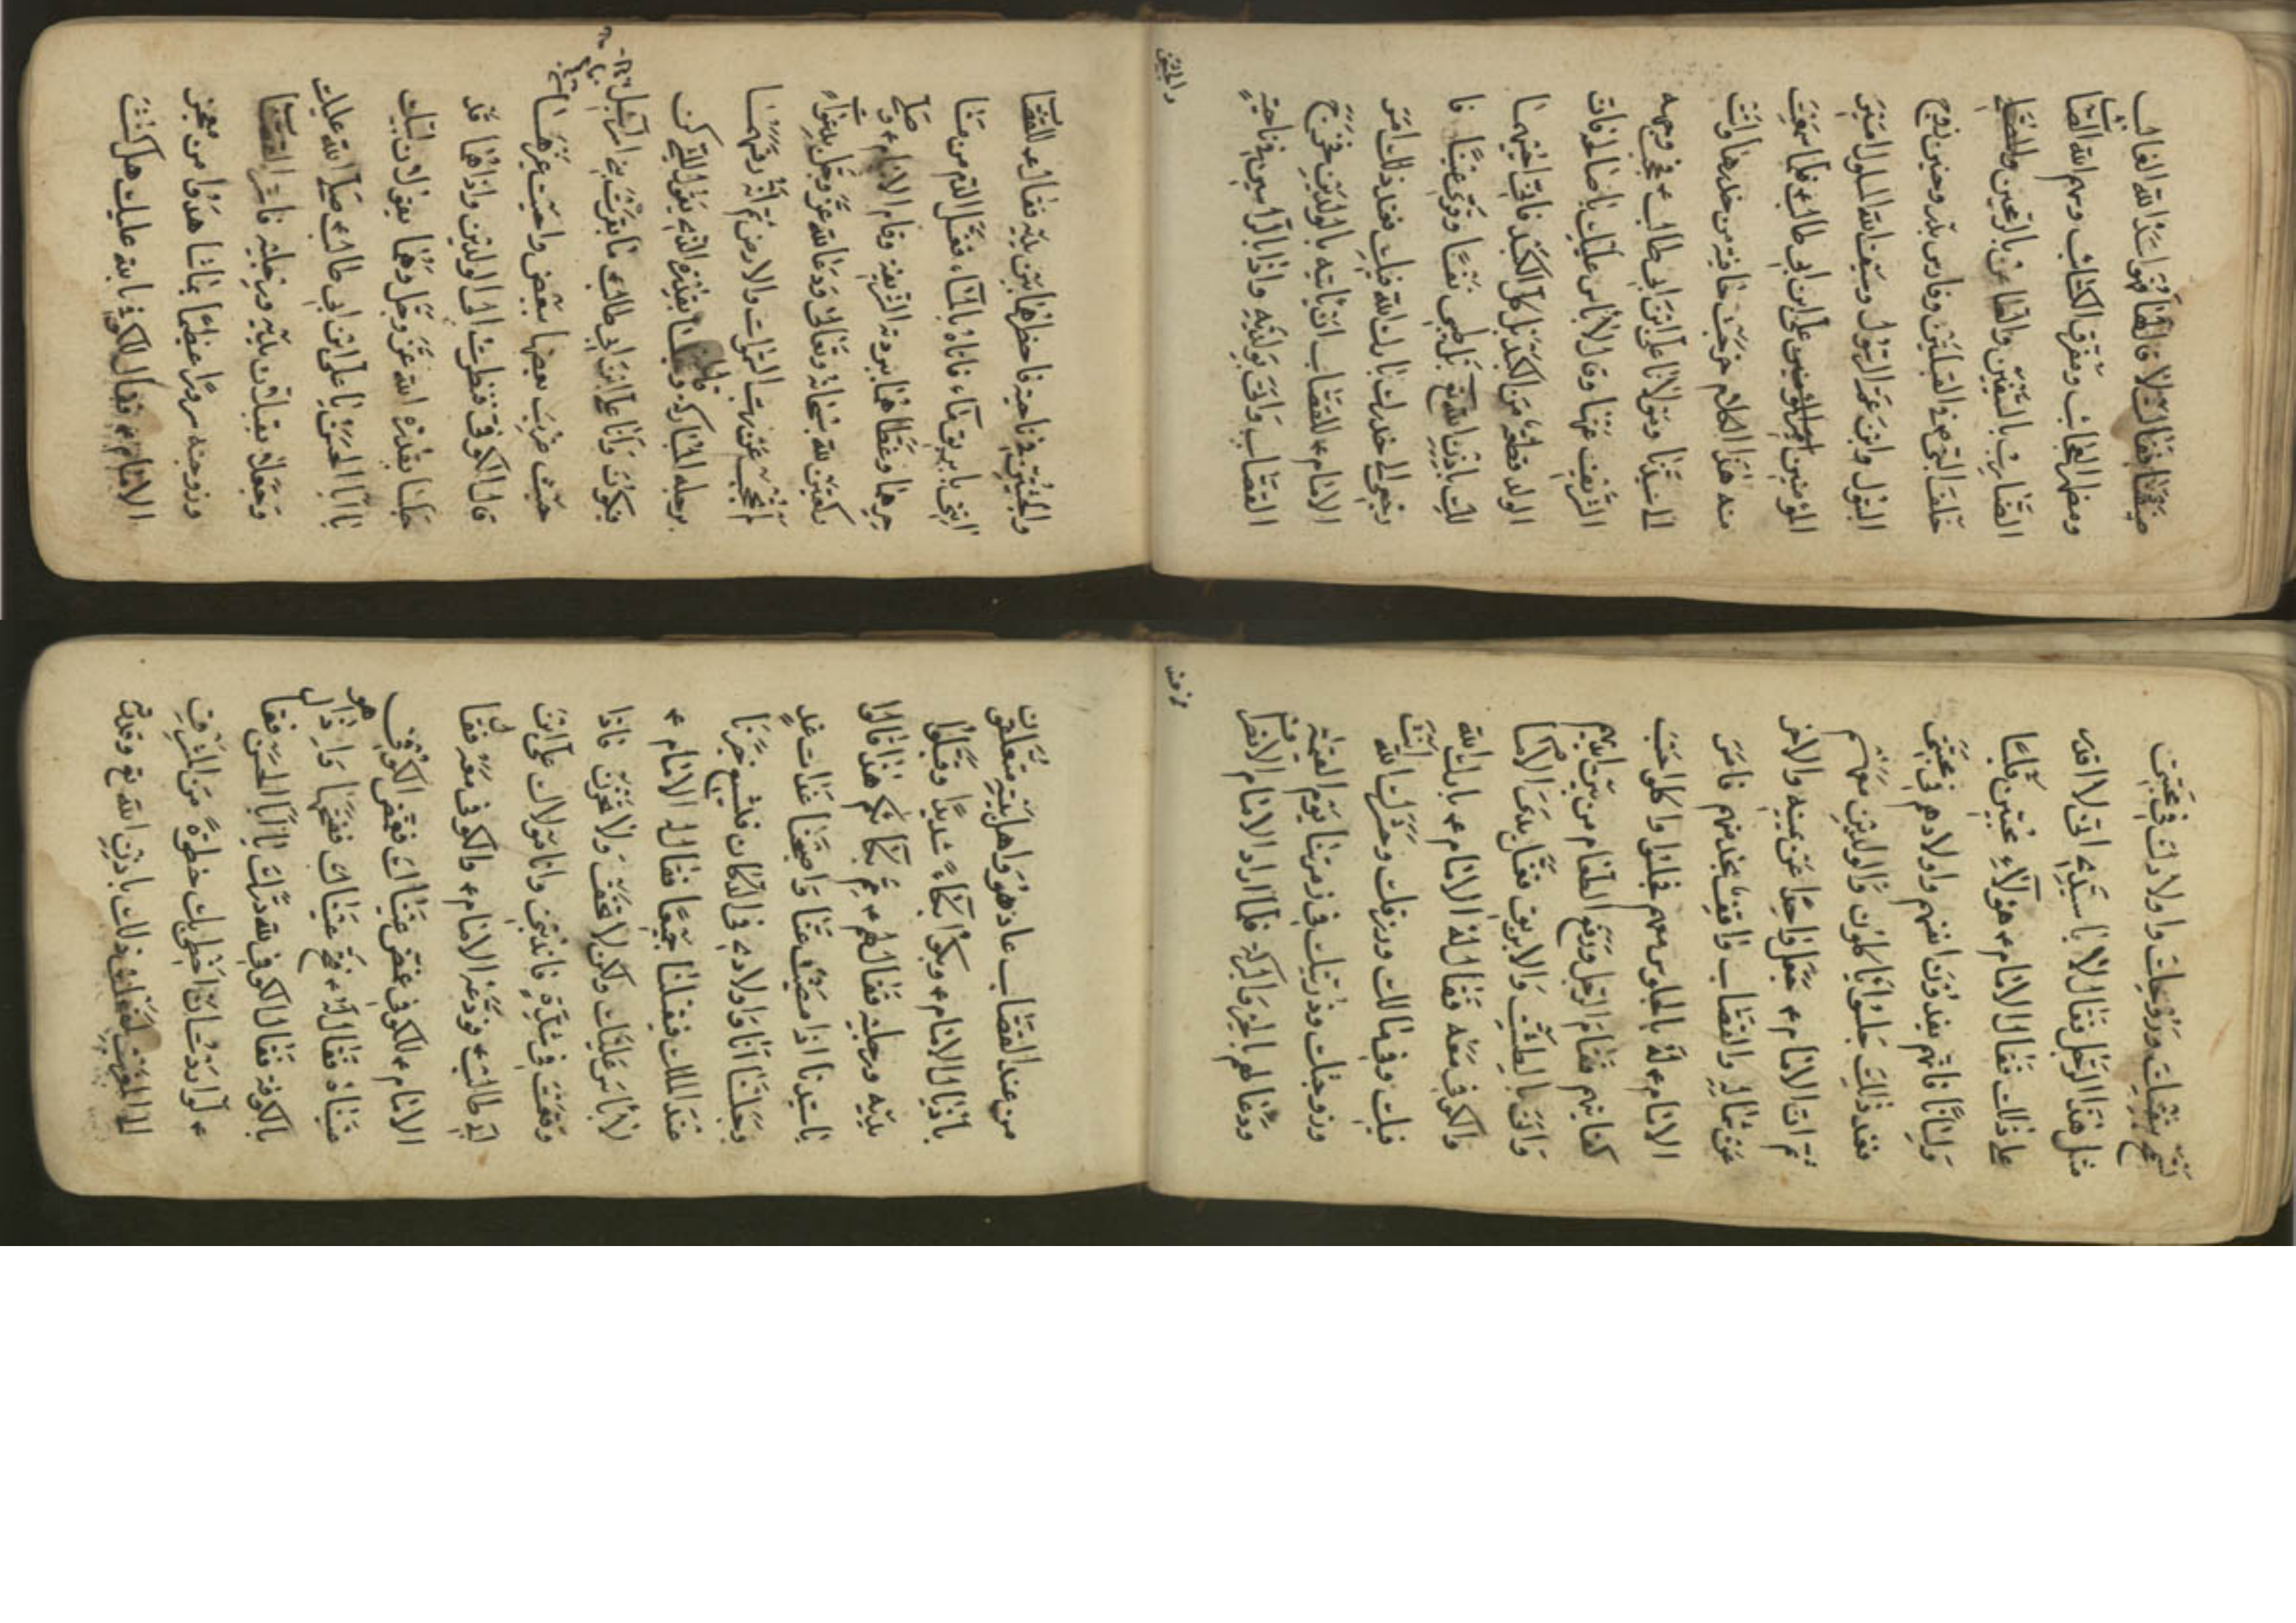 صفقنا فقال لا قال لها هو اسد الله الغالب
ومظهر العجائب ومفرق الكتائب وسهم الله الصائب
الضارب بالسيفين والطاعن بالرمحين والمصلي
خلف النبي في القبلتين وفارس بدر وحنين زوج
البتول وابن عم الرسول وسيف الله المسلول امير
المؤمنين علي ابن ابي طالب ع فلما سمعت
منه هذا الكلام خرجت من خدرها واتت
الى سيدنا ومولانا علي ابن ابي طالب ع وجهه
الشريف عنها وقال لا باس عليك يا صالحة فان
الولد قطعة من الكبد بل كل الكبد
اليك باذن الله تع نفسا وقري عينا فا
رجعي الى خدرك بارك الله فيك فعند ذلك امر
الامام ع للقصاب ان ياتيه بالولدين فخرج
القصاب واتى بولديه واذا بالراسين في ناحية
والجثتين
والجثتين في ناحية فاحطهما بين يديه فقال ع للقصاب
ايتني بابريق ماء فاتاه بالماء فغسل الدم من منا
حرهما وغطاهما ببردته الشريفة وقام الامام ع وصلى
ركعتين لله سبحانه وتعالى ودعا الله عز وجل بدعوات
عنهن السموات والارض ثم انه رفسهما
برجله المباركة وقال بقدرة الذي يقول للشيء كن
فيكون وانا علي ابن ابي طالب ع بني اسرائيل
حيث ضرب بعضها ببعض
قال الكوفي فنظرت الى الولدين واذا هما قد
جلسا بقدرة الله عز وجل وهما يقولان لبيك
يا ابا الحسن يا علي ابن ابي طالب ع صلى الله عليك
وجعلا يقبلان يديه ورجليه فاسر القصاب
وزوجته سرورا عظيما بما شاهدوا من معجز
الامام ع فقال للكوفي بالله عليك هل كنت
تسمح بنفسك وزوجتك واولادك في محبتي
مثل هذا الرجل فقال لا يا سيدي اني لا اقدر
على ذلك فقال الامام ع هؤلاء محبين قلبا
ولسانا فانهم يفدون انفسهم واولادهم في محبتي
فعند ذلك جلسوا ياكلون والولدين معهم
ثم ان الامام ع جعل واحدا عن يمينه والاخر
عن شماله والقصاب واقف بخدمتهم فامر
الامام ع له بالجلوس معهم فجلسوا واكلوا حسب
كفايتهم فقام الرجل ورفع الطعام من بين ايديهم
واتى بالطشت والابريق فغسل يدي الامام
والكوفي معه فقال له الامام ع بارك الله
فيك وفي مالك ورزقك وحشرك الله انت
وزوجتك وذريتك في زمرتنا يوم القيمة
ودعا لهم بالخير والبركة فلما اراد الامام الانصراف
من عند
من عند القصاب عاد هو واهل بيته يتعلقون
باذيال الامام ع وبكوا بكاء شديدا وقبلوا
يديه ورجليه فقال لهم ع مم بكائكم هذا فقالوا
يا سيدنا اذا مضيت عنا واصبحنا غداة غد
وجلسنا انا واولادي في الدكان فتشيع خبرنا
عند الملك فيقتلنا جميعا فقال له الامام ع
لا باس عليك ولكن لا تخف ولا تحزن فاذا
وقعت في شدة فاندبني وانا مولاك علي ابن
ابي طالب ع فودعه الامام ع والكوفي معه فقال
الامام ع للكوفي غمض عيناك فغمض الكوفي
عيناه فقال له ع فتح عيناك ففتحها واذا هو
بالكوفة فقال الكوفي لله درك يا ابا الحسن فقال
ع لو اردت ان اخطي بك خطوة من المشرق
الى المغرب لفعلت ذلك باذن الله تع وقدرته